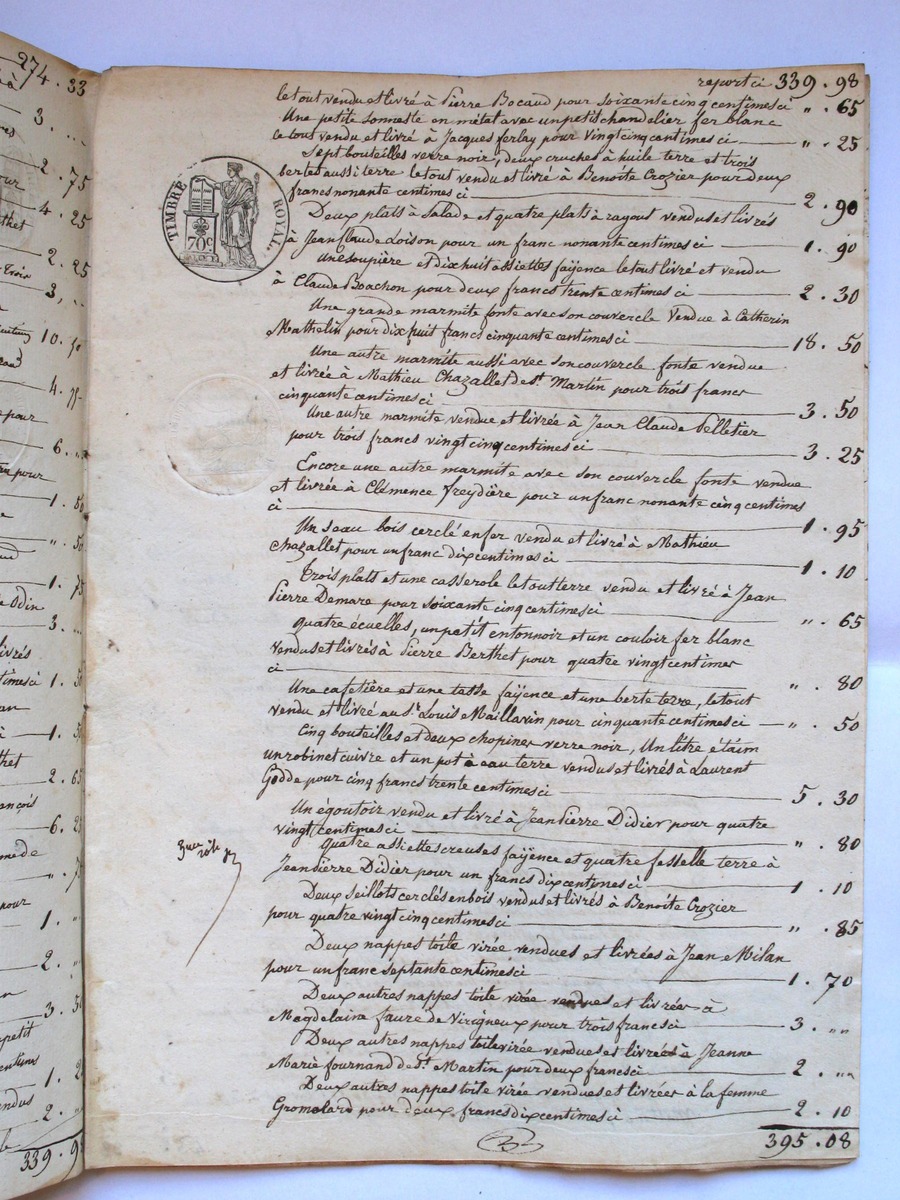 274 . 33
3 . ..
2 . 75
pour
4 . 25
2 . 25
3 , ..
10 . 50
4 . 75
pour
6 . ..
pour
1 . 50
" . 50
1 . 75
Odin
3 . ..
livrés
1 . 50
1 . 50
2 . 65
François
6 . 25
" . 75
pour
1 . "
2 . "
3 . 50
petit
1 . 2
2 . "
339 . 98
report ci 339 . 98
le tout vendu et livré à Pierre Bocaud pour soixante cinq centimes ci " . 65
Une petite sonneste en métal avec un petit chandelier fer blanc
le tous vendu et livré à Jacques ferlay pour vingt cinq centimes ci — " . 25
Sept bouteilles verre noir, deux cruches à huile terre et trois
bertes aussi terre le tout vendu et livré à Benoite Crozier pour deux
francs nonante centimes ci — 2 . 90
Deux plats à salade et quatre plats à ragout vendus et livrés
à Jean flaude Loison pour un franc nonante centimes ci — 1 . 90
une soupière et dix huit assiettes fayence le tout livré et vendu
à Claude Boachon pour deux francs trente centimes ci — 2 . 30
Une grande marmite fonte avec son couvercle vendue à Catherin
Mathelin pour dix huit francs cinquante centimes ci — 18 . 50
Une autre marmite aussi avec son couvercle fonte vendue
et livrée à Mathieu Chazallet de St. Martin pour trois francs
cinquante centimes ci — 3 . 50
Une autre marmite vendue et livrée à Jean Claude Pelletier
pour trois francs vingt cinq centimes ci — 3 . 25
Encore une autre marmite avec son couvercle fonte vendue
et livrée à Clémence freydière pour un franc nonante cinq centimes
ci — 1 . 95
Un seau bois cerclé en fer vendu et livré à Mathieu
Chazallet pour un franc dix centimes ci — 1 . 10
Trois plats et une casserole le tout terre vendu et livré à Jean
Pierre Demare pour soixante cinq centimes ci — " . 65
quatre écuelles, un petit entonnoir et un couloir fer blanc
vendus et livrés à Pierre Berthet pour quatre vingt centimes
ci — " . 80
Une cafetière et une tasse fayence et une berte terre, le tout
vendu et livré au Sr. Louis Maillavin pour cinquante centimes ci — " . 50
Cinq bouteilles et deux chopines verre noir, Un litre étaim
un robinet cuivre et un pot à eau terre vendus et livrés à Laurent
Godde pour cinq francs trente centimes ci — 5 . 30
Un égoutoir vendu et livré à Jean Pierre Didier pour quatre
vingt centimes ci — " . 80
quatre assiettes creuses fayence et quatre fesselle terre à
Jean Pierre Didier pour un francs dix centimes ci — 1 . 10
Deux seillots cerclés en bois vendus et livrés à Benoite Crozier
pour quatre vingt cinq centimes ci — " . 85
Deux nappes toile virée vendues et livrées à Jean Milan
pour un franc septante centimes ci — 1 . 70
Deux autres nappes toile virée vendues et livrées à
Magdelaine faure de Virigneux pour trois francs ci — 3 . ""
Deux autres nappes toile virée vendues et livrées à Jeanne
Marie fournand de St. Martin pour deux francs ci — 2 . ""
Deux autres nappes toile virée vendues et livrées à la femme
Gromolard pour deux francs dix centimes ci — 2 . 10
395 . 08
TIMBRE ROYAL.
70c.